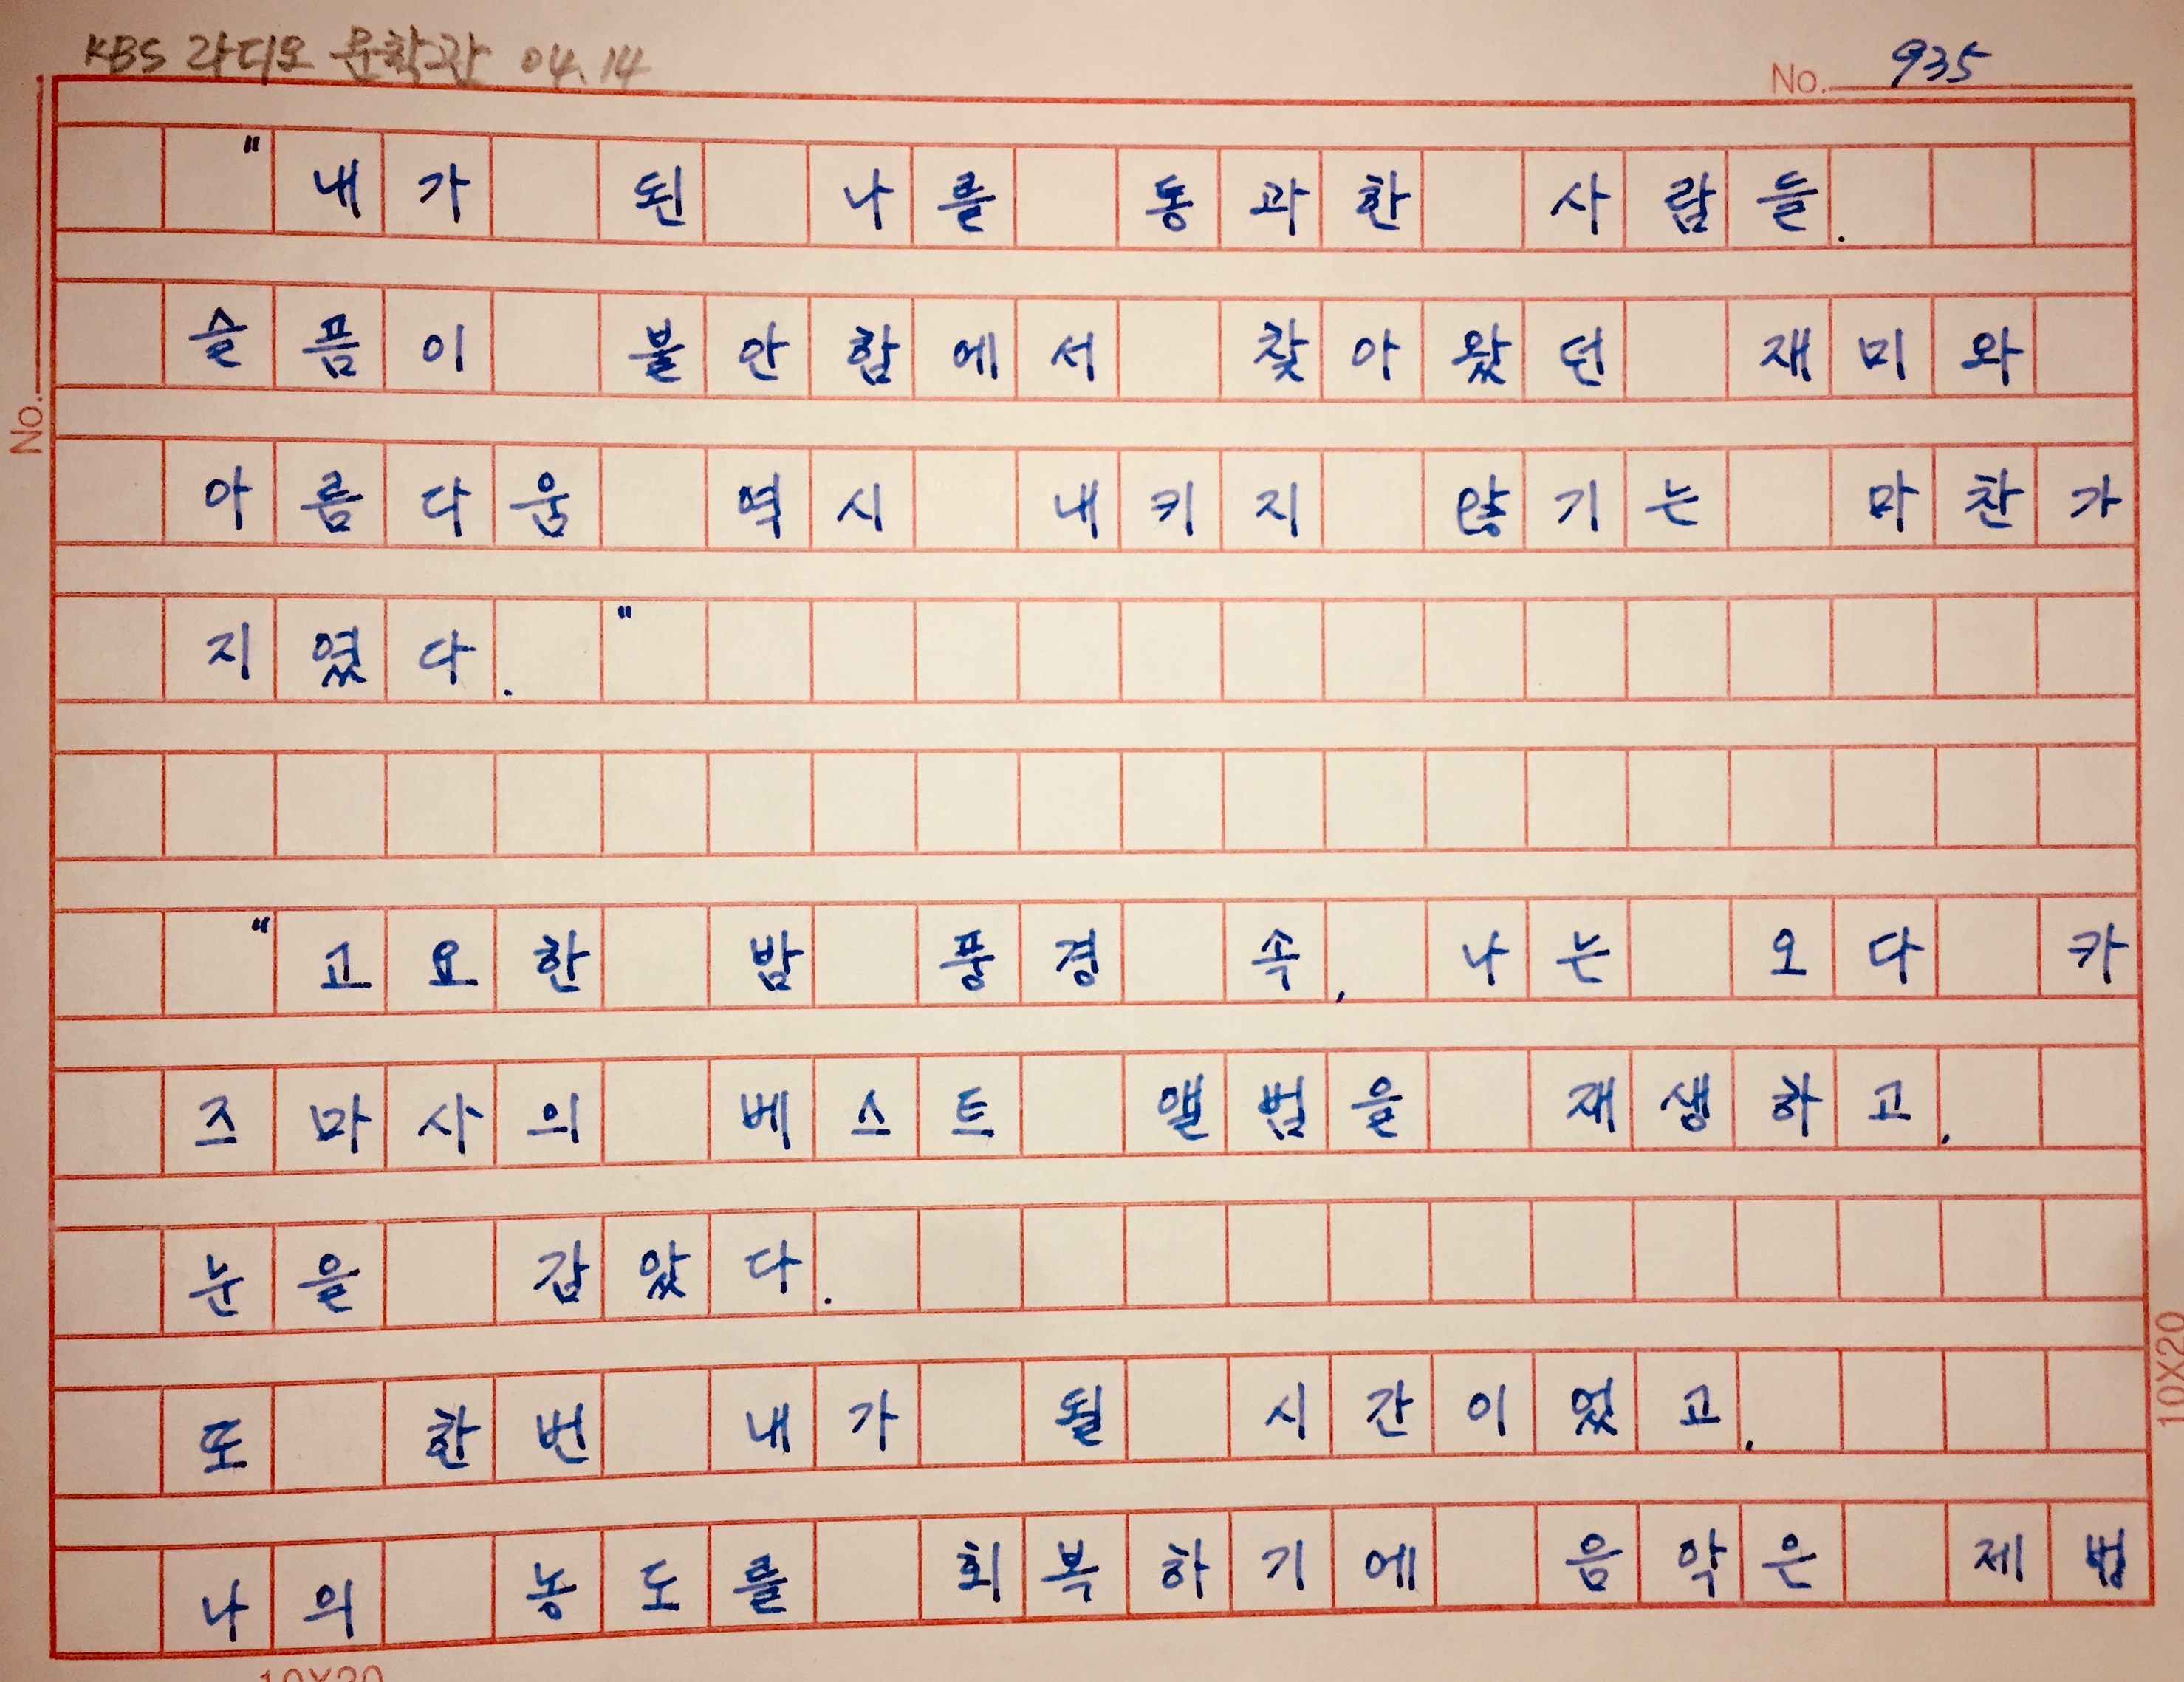 KBS 라디오 문학관 04.14
No. 935
"내가 된 나를 통과한 사람들.
슬픔이 불안함에서 찾아왔던 재미와
아름다움 역시 내키지 않기는 마찬가
지였다."
"고요한 밤 풍경 속, 나는 오다 카
즈마사의 베스트 앨범을 재생하고,
눈을 감았다.
또 한번 내가 될 시간이었고,
나의 농도를 회복하기에 음악은 제법
No.
10X20
10X20